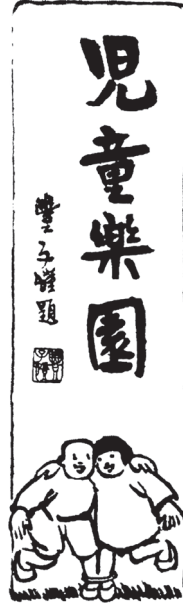 児童樂園
豐子愷題